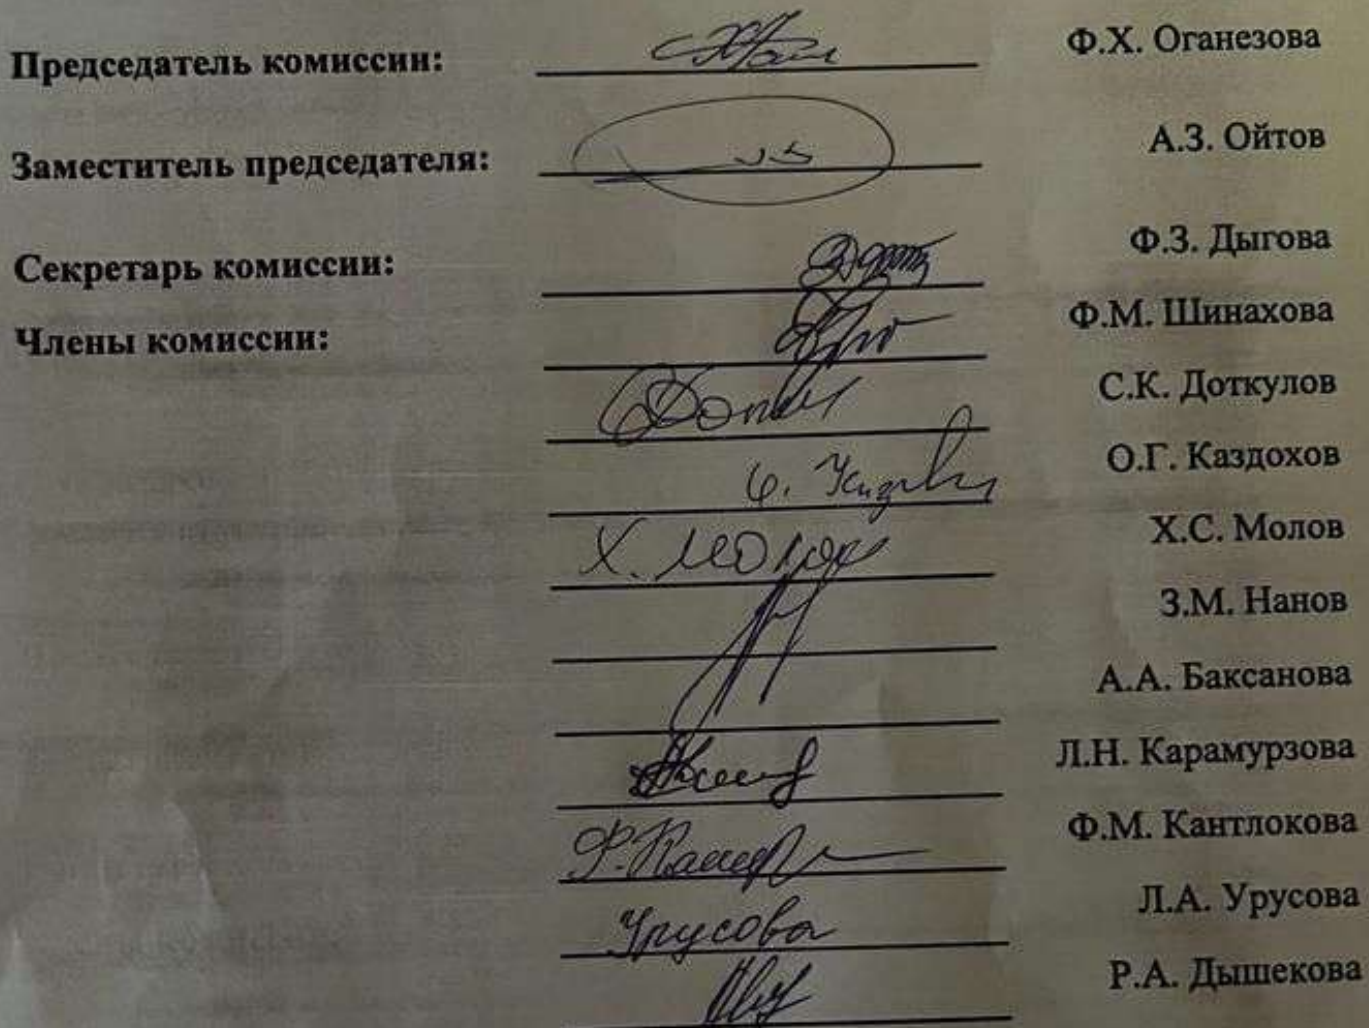 Председатель комиссии: Ф.Х. Оганезова
Заместитель председателя: А.З. Ойтов
Секретарь комиссии: Ф.З. Дыгова
Члены комиссии: Ф.М. Шинахова
С.К. Доткулов
О.Г. Каздохов
Х. Х.С. Молов
З.М. Нанов
А.А. Баксанова
Л.Н. Карамурзова
Ф.М. Кантлокова
Урусова Л.А. Урусова
Р.А. Дышекова